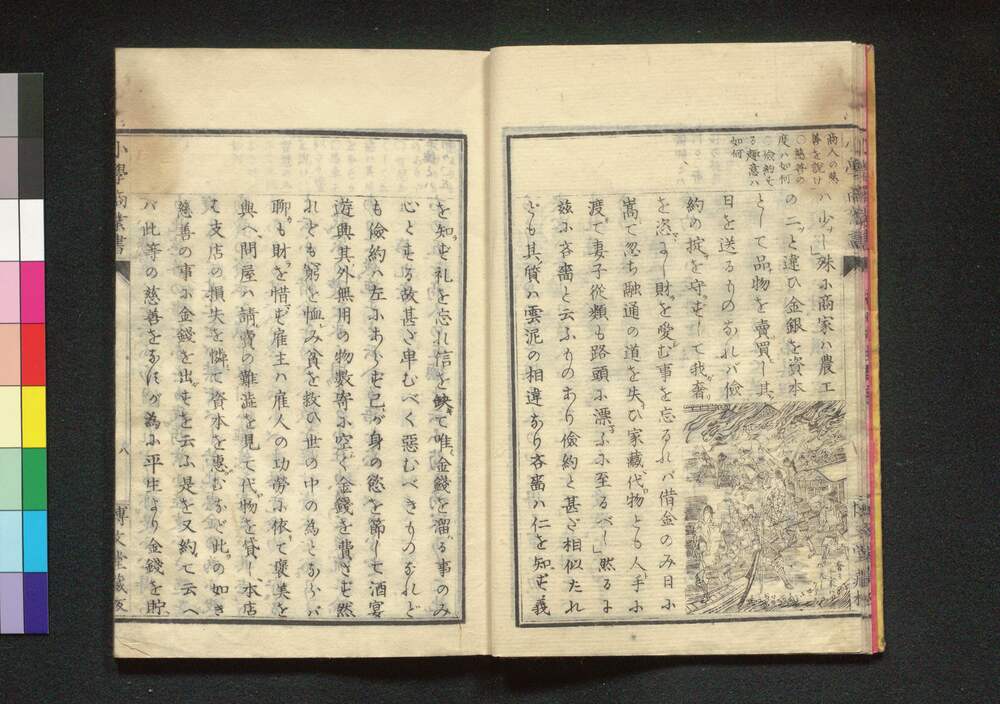 商人の慈
善を說け
○慈善の
度ハ如何
○儉約を
る趣意ハ
如何
ハ少し殊に商家ハ農工
の二ッと違ひ金銀を資本
として品物を賣買し其
日を送るものなれバ儉
約の掟を守らずして我奢
を恣にし財を愛む事を忘るれバ借金のみ日に
嵩て忽ち融通の道を失ひ家藏代物とも人手に
渡て妻子從類も路頭に漂ふに至るべし然るに
茲に吝嗇と云ふものあり儉約と甚ざ相似たれ
ども其質ハ雲泥の相違あり吝嗇ハ仁を知ず義
を知ず礼を忘れ信を缺て唯金錢を溜る事のみ
心とする故甚ざ卑むべく惡むべきものなれど
も儉約ハ左にあらず己が身の慾を節して酒宴
遊興其外無用の物數寄に空く金錢を費さず然
れども窮を恤み貧を救ひ世の中の為とならバ
聊も財を惜ず雇主ハ雇人の功勞に依て褒美を
與へ問屋ハ請賣の難澁を見て代物を貸し本店
ハ支店の損失を憐て資本を惠むなど此の如き
慈善の事に金錢を出すを云ふ是を又約て云へ
バ此等の慈善をなすが為に平生より金錢を貯
小學商業書
八
博文堂藏版